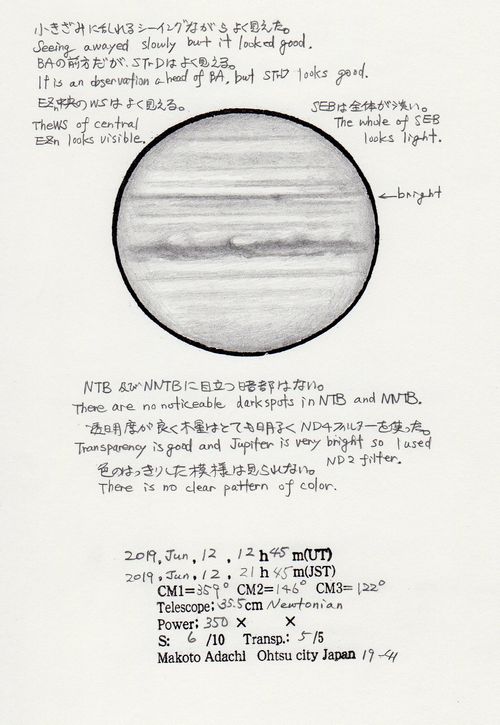 小きざみにゆれるシーイングながらよく見えた。
Seeing awayed slowly but it looked good.
BAの前方だが、STrDはよく見える。
It is an observation ahead of BA, but STrD looks good.
EZ中央のWSはよく見える。
The WS of central
EZn looks visible.
SEBは全体が淡い。
The whole of SEB
looks light.
←bright
NTB及びNNTBに目立つ暗部はない。
There are no noticeable dark spots in NTB and NNTB.
透明度が良く木星はとても明るくND4フィルターを使った。
Transparency is good and Jupiter is very bright so I used
ND2 filter.
色のはっきりした模様は見られない。
There is no clear pattern of color.
2019, Jun, 12, 12 h 45 m(UT)
2019, Jun, 12, 21 h 45 m(JST)
CM1=359° CM2=146° CM3=122°
Telescope; 35.5cm Newtonian
Power; 350 × ×
S: 6 /10 Transp.: 5/5
Makoto Adachi Ohtsu city Japan 19-41